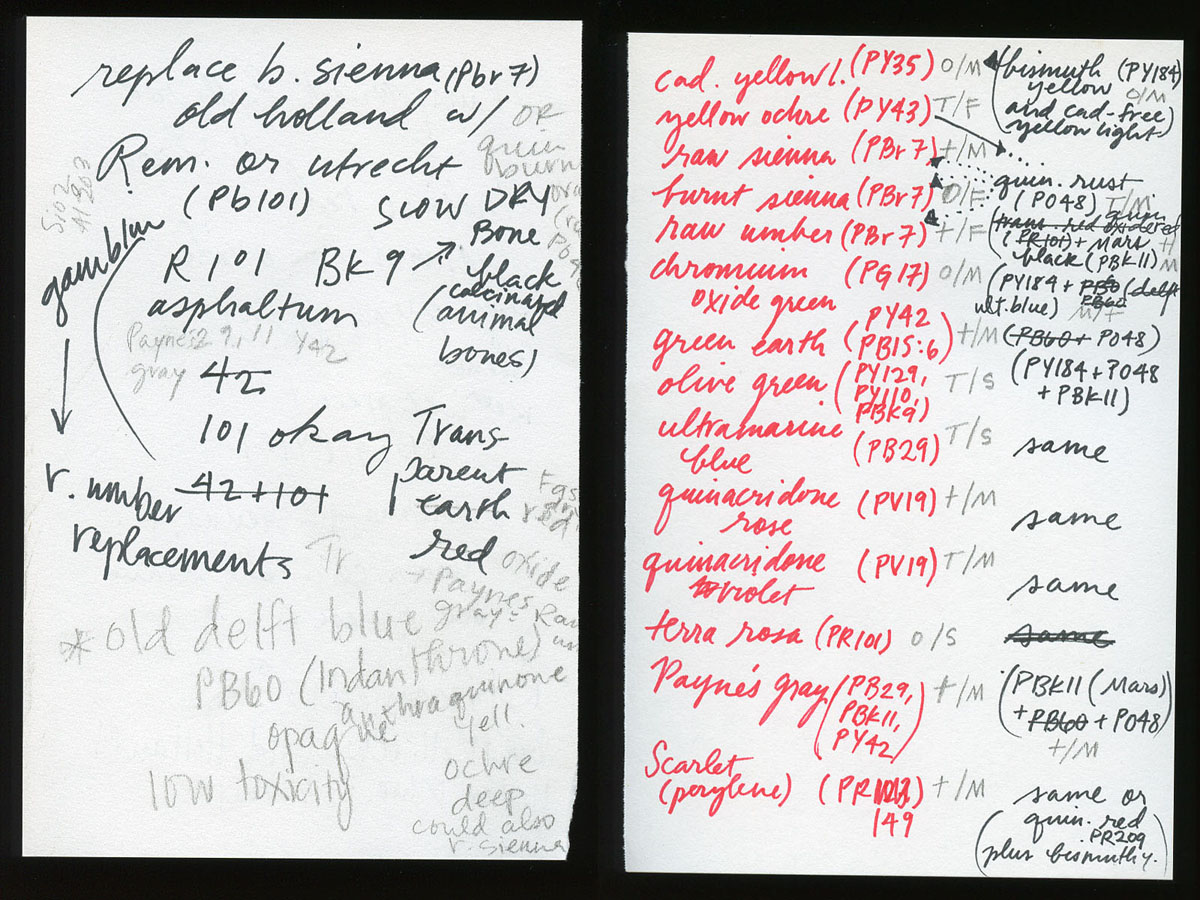 replace b. sienna (Pbr7)
old holland w/ OR
Rem. or utrecht quin
(Pb101)
SLOW DRY
gamblin
R 101 BK 9 → Bone
black
asphaltum (calcinated
animal
bones)
Paynes 29, 11 Y42
gray
42
101 okay Trans-
parent
r. umber 42+101 earth
red
replacements
oxide
+ Paynes
gray =
* old delft blue
PB60 (Indanthrone)
anthraquinone
opaque
low toxicity
yell.
ochre
deep
could also
r. sienna
cad. yellow l. (PY35) O/M
yellow ochre (PY43) T/F
raw sienna (PBr7) +/M
burnt sienna (PBr7) O/F
raw umber (PBr7) +/F
chromium (PG17) O/M
oxide green
green earth (PY42
PB15:6) +/M
olive green (PY129,
PY110,
PBK9) T/S
ultramarine
blue (PB29) T/S
quinacridone (PV19) +/M
rose
quinacridone (PV19) T/M
violet
terra rosa (PR101) O/S
Paynes gray (PB29,
PBK11,
PY42) +/M
Scarlet
(perylene) (PR
149 +/M
bismuth (PY184)
yellow O/M
(and cad-free
yellow light)
quin. rust
(PO48) T/M
trans. red oxide red quin
(PR101) + Mars
black (PBK11) M
(PY184 + PB60 (delft
PB60
ult. blue)
(PB60 + PO48)
(PY184 + PO48
+ PBK11)
same
same
same
same
(PBK11 (Mars)
+ PB60 + PO48)
+/M
same or
(quin. red
PR209
plus bismuth y.)